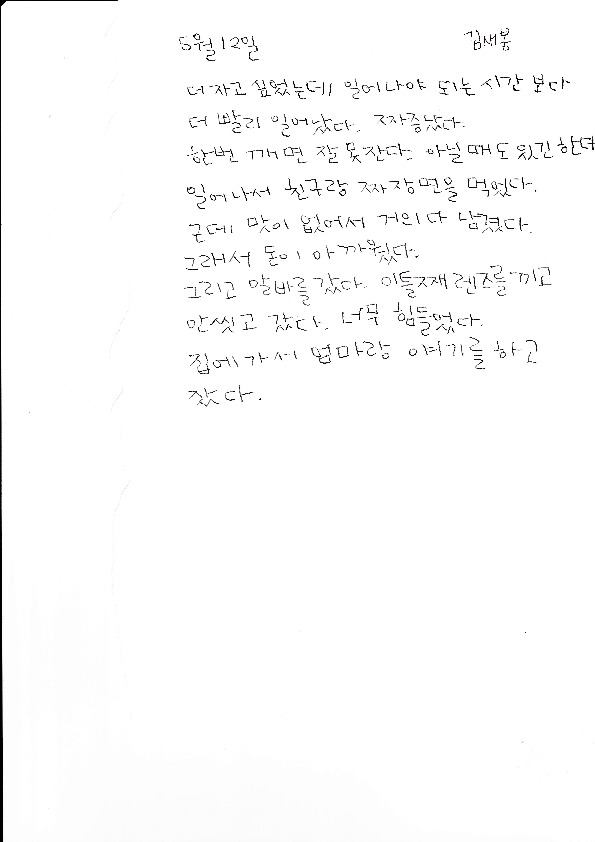 5월 12일 김새봄
더 자고 싶었는데 일어나야 되는 시간 보다
더 빨리 일어났다. 짜증났다.
한번 깨면 잘 못잔다. 아닐때도 있긴한데
일어나서 친구랑 짜장면을 먹었다.
근데 맛이 없어서 거의 다 남겼다.
그래서 돈이 아까웠다.
그리고 알바를 갔다. 이틀째 렌즈를 끼고
안씻고 갔다. 너무 힘들었다.
집에가서 엄마랑 얘기를 하고
잤다.